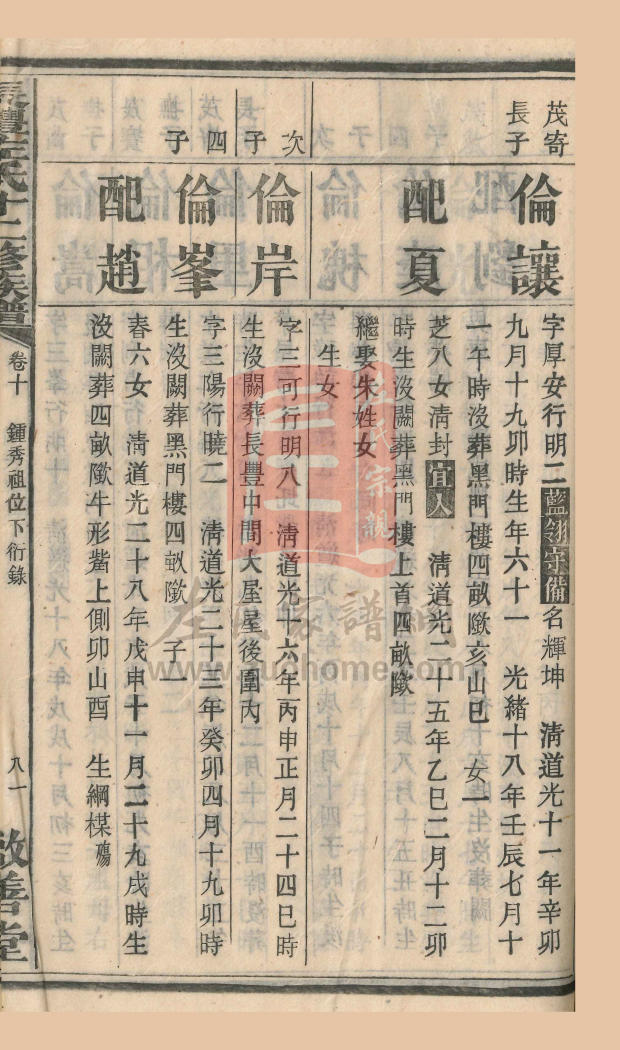 茂寄
長子
倫讓
字厚安行明二藍翎守備名輝坤　清道光十一年辛卯
九月十九卯時生年六十一　光緒十八年壬辰七月十
一午時沒葬黑門樓四畝墩亥山巳　女一
配夏
芝八女清封宜人　清道光二十五年乙巳二月十二卯
時生沒闕葬黑門樓上首四畝墩
繼娶朱姓女
生女
次子
倫岸
字三可行明八　清道光十六年丙申正月二十四巳時
生沒闕葬長豐中間大屋屋後圍內
四子
倫峯
字三陽行曉二　清道光二十三年癸卯四月十九卯時
生沒闕葬黑門樓四畝墩　子一
配趙
春六女　清道光二十八年戊申十一月二十九戌時生
沒闕葬四畝墩牛形觜上側卯山酉　生綱楳殤
卷十　鍾秀祖位下衍錄
八一
啟善堂
左氏家譜網
www.zuohome.com